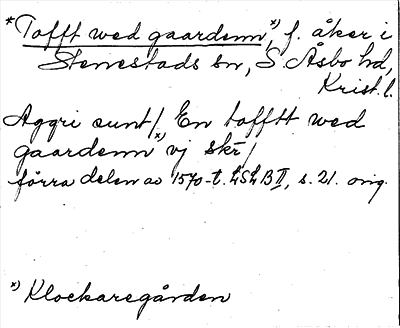 *Tofft wed gaardenn*), f. åker i
Stenestads sn, S. Åsbo hd,
Krist. l.
Aggri sunt / En tofftt wed
gaardenn*) vj skr̄ /
förra delen av 1570-t. LSLB II, s. 21. orig.
*) Klockaregården